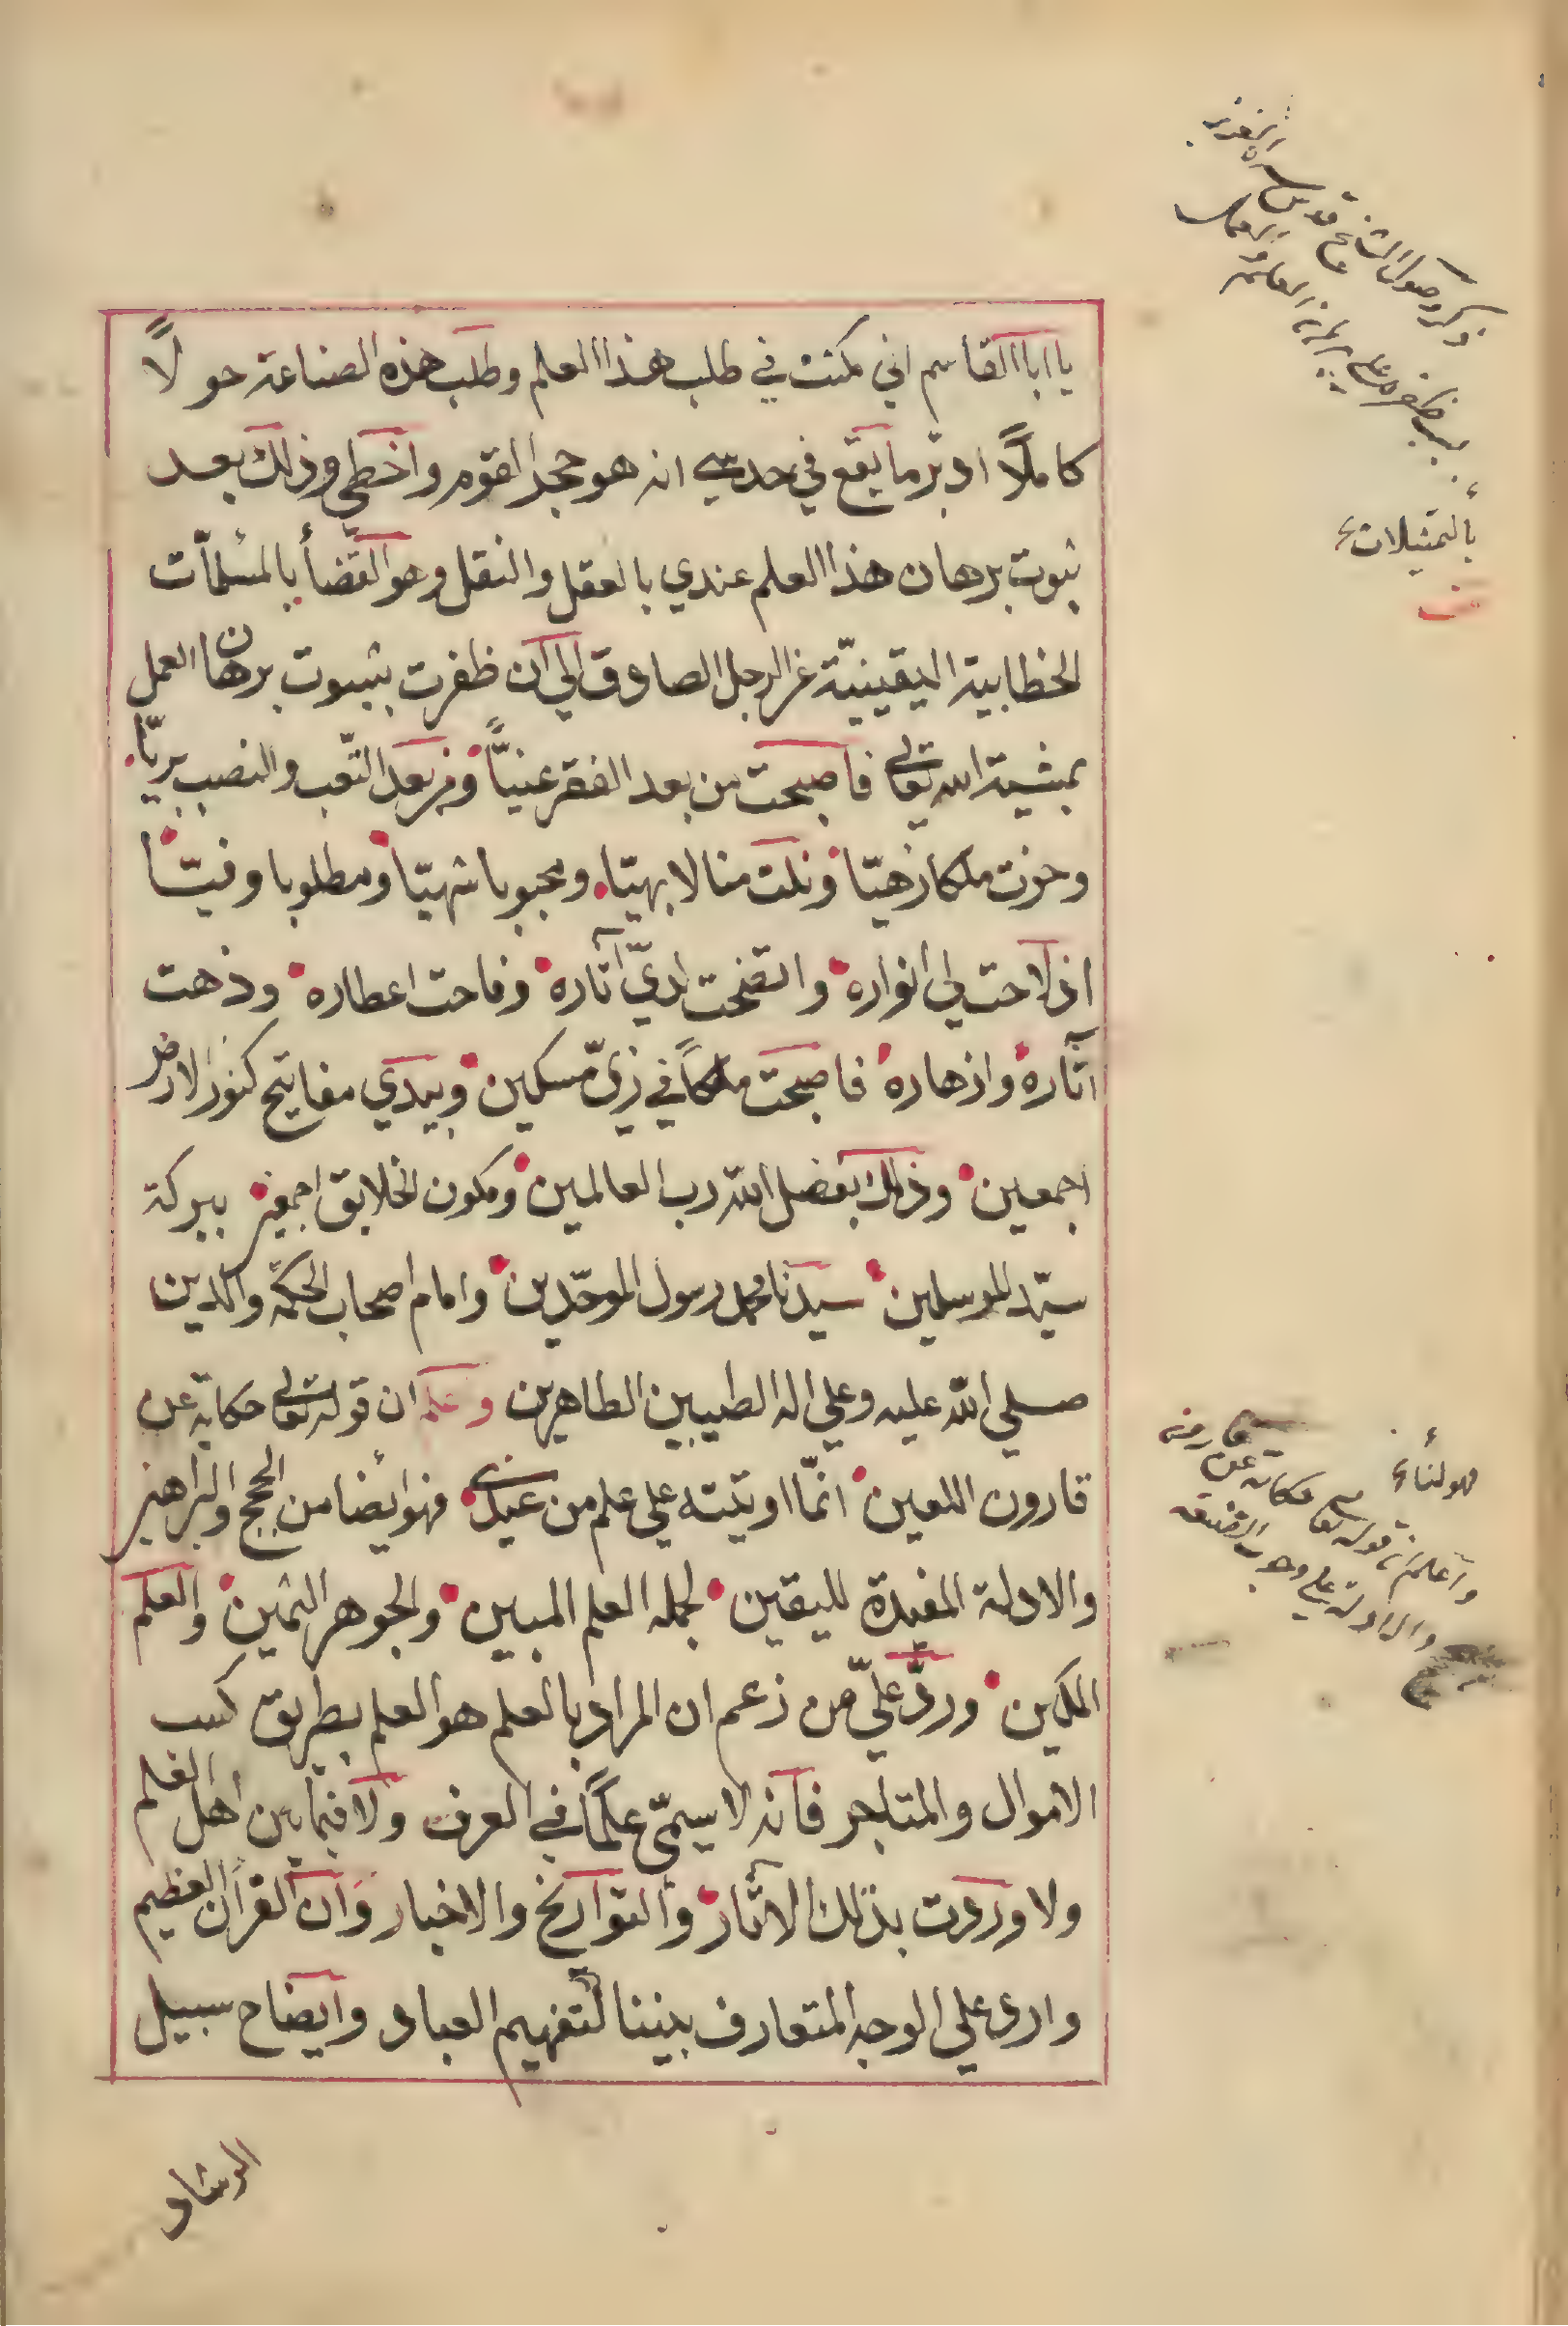 يا ابا القاسم اني مكثت في طلب هذا العلم وطلب هذه الصناعة حولاً
كاملاً ادبّر ما يقع في حدسي انه هو حجر القوم واخطي وذلك بعد
ثبوت برهان هذا العلم عندي بالعقل والنقل وهو القضأ بالمسلمّات
الخطابية اليقينيّة عن الرجل الصادق الي ان ظفرت بثبوت برهان العمل
بمشية الله تعالي فاصبحت من بعد الفقر غنيّاً ومن بعد التّعب والنصب بريّا
وحزت ملكا زهيّا ونلت منالا بهيّا ومحبوبا شهيّا ومطلوبا وفيّا
اذ لاحت لي انواره واتضحت لديّ آثاره وفاحت اعطاره وزهت
آثاره وازهاره فاصبحت ملكاً في زيّ مسكين وبيدي مفاتيح كنوز الارض
اجمعين وذلك بفضل الله رب العالمين ومكون الخلايق اجمعين ببركة
سيّد المرسلين سيدنا محمد رسول الموحّدين وامام اصحاب الحكمة والدين
صلي الله عليه وعلي اله الطيبين الطاهرين وعلم ان قوله تعالي حكاية عن
قارون اللعين انمّا اوتيته علي علم من عندي فهو ايضا من الحجج والبراهين
والادلة المفيدة لليقين لجملة العلم المبين والجوهر الثمين والعلم
المكين وردّ عليّ من زعم ان المراد بالعلم هو العلم بطريق كسب
الاموال والمتاجر فانه لا يسمّي علماً في العرف ولا فيما بين اهل العلم
ولا وردت بذلك الآثار والتواريخ والاخبار وان القرآن العظيم
وارد علي الوجه المتعارف بيننا لتفهيم العباد وايضاح سبيل
الرشاد
ذكر وصول الشيخ قدس سره العزيز
علي برهان العلم والعمل
بالتمثيلات
واعلم ان قوله تعالي حكاية عن قارون
والادلة علي وجوب الصنعة